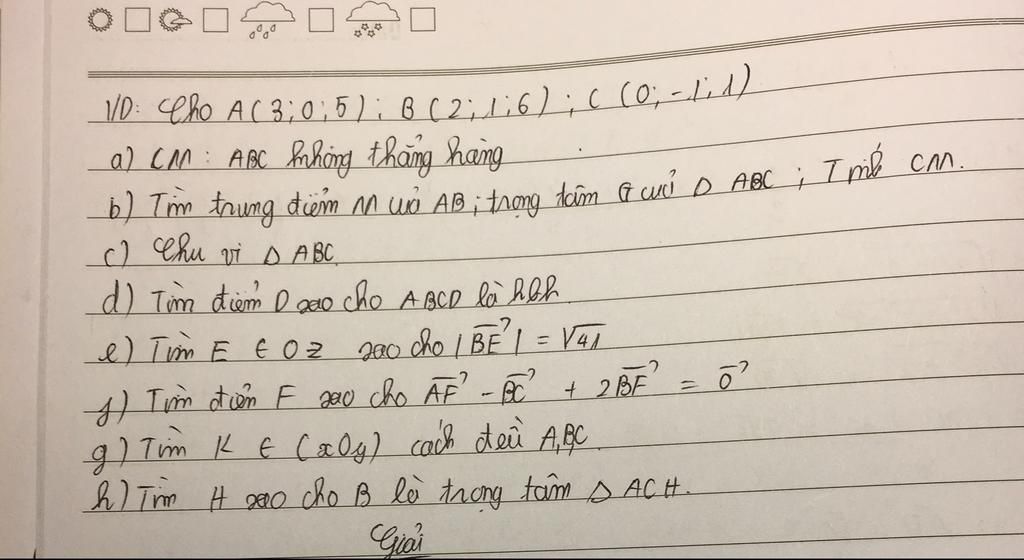 VD: Cho A(3;0;5); B(2;1;6); C(0;-1;1)
a) CM: ABC không thẳng hàng
b) Tìm trung điểm M của AB; trọng tâm G của Δ ABC; T
c) Chu vi Δ ABC.
d) Tìm điểm D sao cho ABCD là hbh
e) Tìm E ∈ Oz sao cho |BE⃗| = √41
f) Tìm điểm F sao cho AF⃗ - BC⃗ + 2BF⃗ = 0⃗
g) Tìm K ∈ (xOy) cách đều A,B,C
h) Tìm H sao cho B là trọng tâm Δ ACH.
Giải